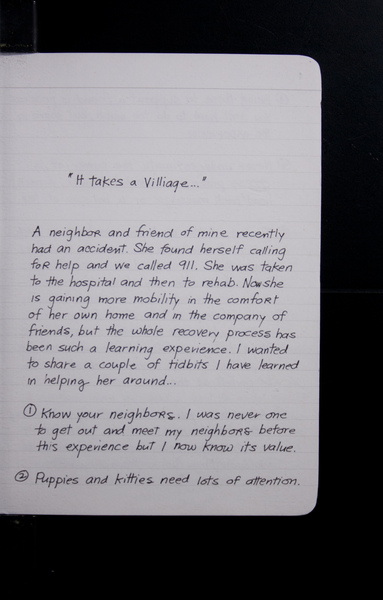 "It takes a Villiage..."
A neighbor and friend of mine recently
had an accident. She found herself calling
for help and we called 911. She was taken
to the hospital and then to rehab. Now she
is gaining more mobility in the comfort
of her own home and in the company of
friends, but the whole recovery process has
been such a learning experience. I wanted
to share a couple of tidbits I have learned
in helping her around...
① Know your neighbors. I was never one
to get out and meet my neighbors before
this experience but I now know its value.
② Puppies and kitties need lots of attention.